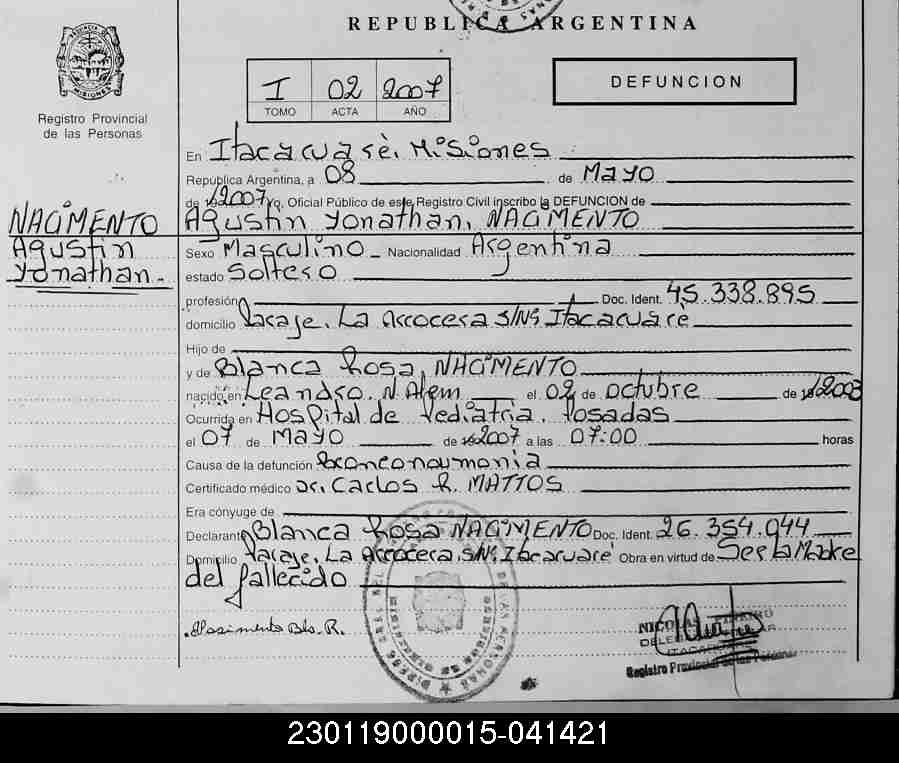 REPUBLICA ARGENTINA
I 02 2007
TOMO ACTA AÑO
DEFUNCION
PROVINCIA DE
MISIONES
Registro Provincial
de las Personas
NACIMENTO
Agustin
Yonathan.-
En Itacaruaré, Misiones
República Argentina, a 08 de Mayo
de 2007 yo, Oficial Público de este Registro Civil inscribo la DEFUNCION de
Agustin Yonathan, NACIMENTO
Sexo Masculino Nacionalidad Argentina
estado Soltero
profesión Doc. Ident. 45.338.895
domicilio Paraje, La Arrocera S/Nº, Itacaruaré
Hijo de
y de Blanca Rosa, NACIMENTO
nacido en Leandro. N. Alem el 02 de octubre de 2003
Ocurrida en Hospital de Pediatria. Posadas
el 07 de Mayo de 2007 a las 07:00 horas
Causa de la defunción Bronconoumonia
Certificado médico Dr. Carlos R. MATTOS
Era cónyuge de
Declarante Blanca Rosa NACIMENTO Doc. Ident. 26.354.044
Domicilio Paraje, La Arrocera, S/Nº, Itacaruaré Obra en virtud de Ser la Madre
del fallecido
Nasimento Bla. R.
NICOLAS
Registro Provincial de las Personas
230119000015-041421